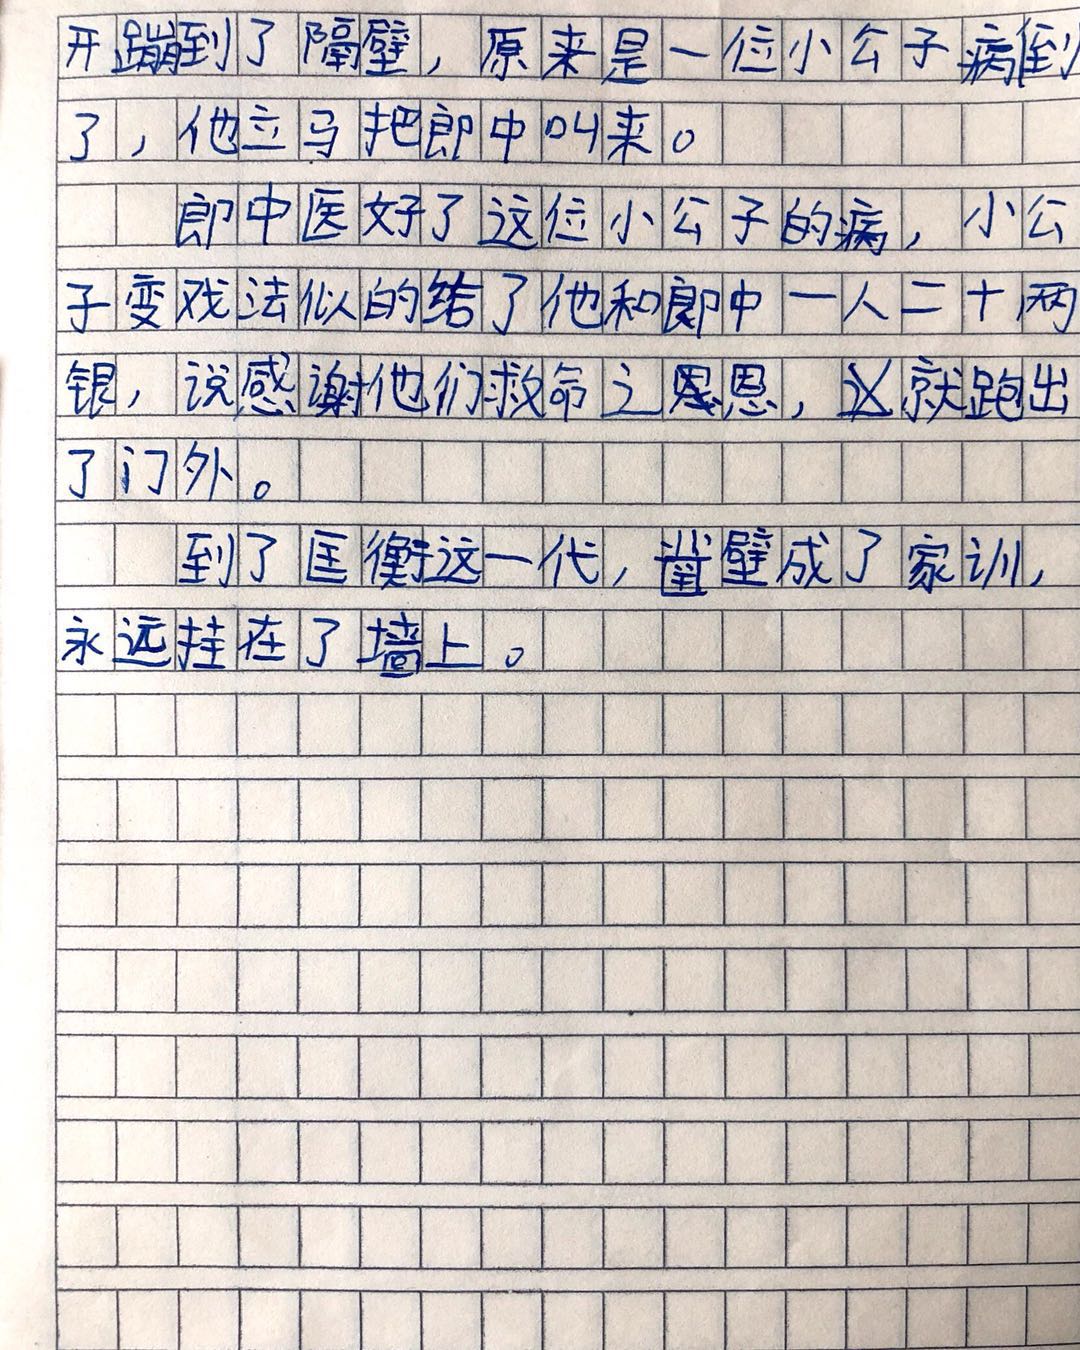 开蹦到了隔壁，原来是一位小公子病倒
了，他立马把郎中叫来。
郎中医好了这位小公子的病，小公
子变戏法似的给了他和郎中一人二十两
银，说感谢他们救命之恩，就跑出
了门外。
到了匡衡这一代，凿壁成了家训，
永远挂在了墙上。